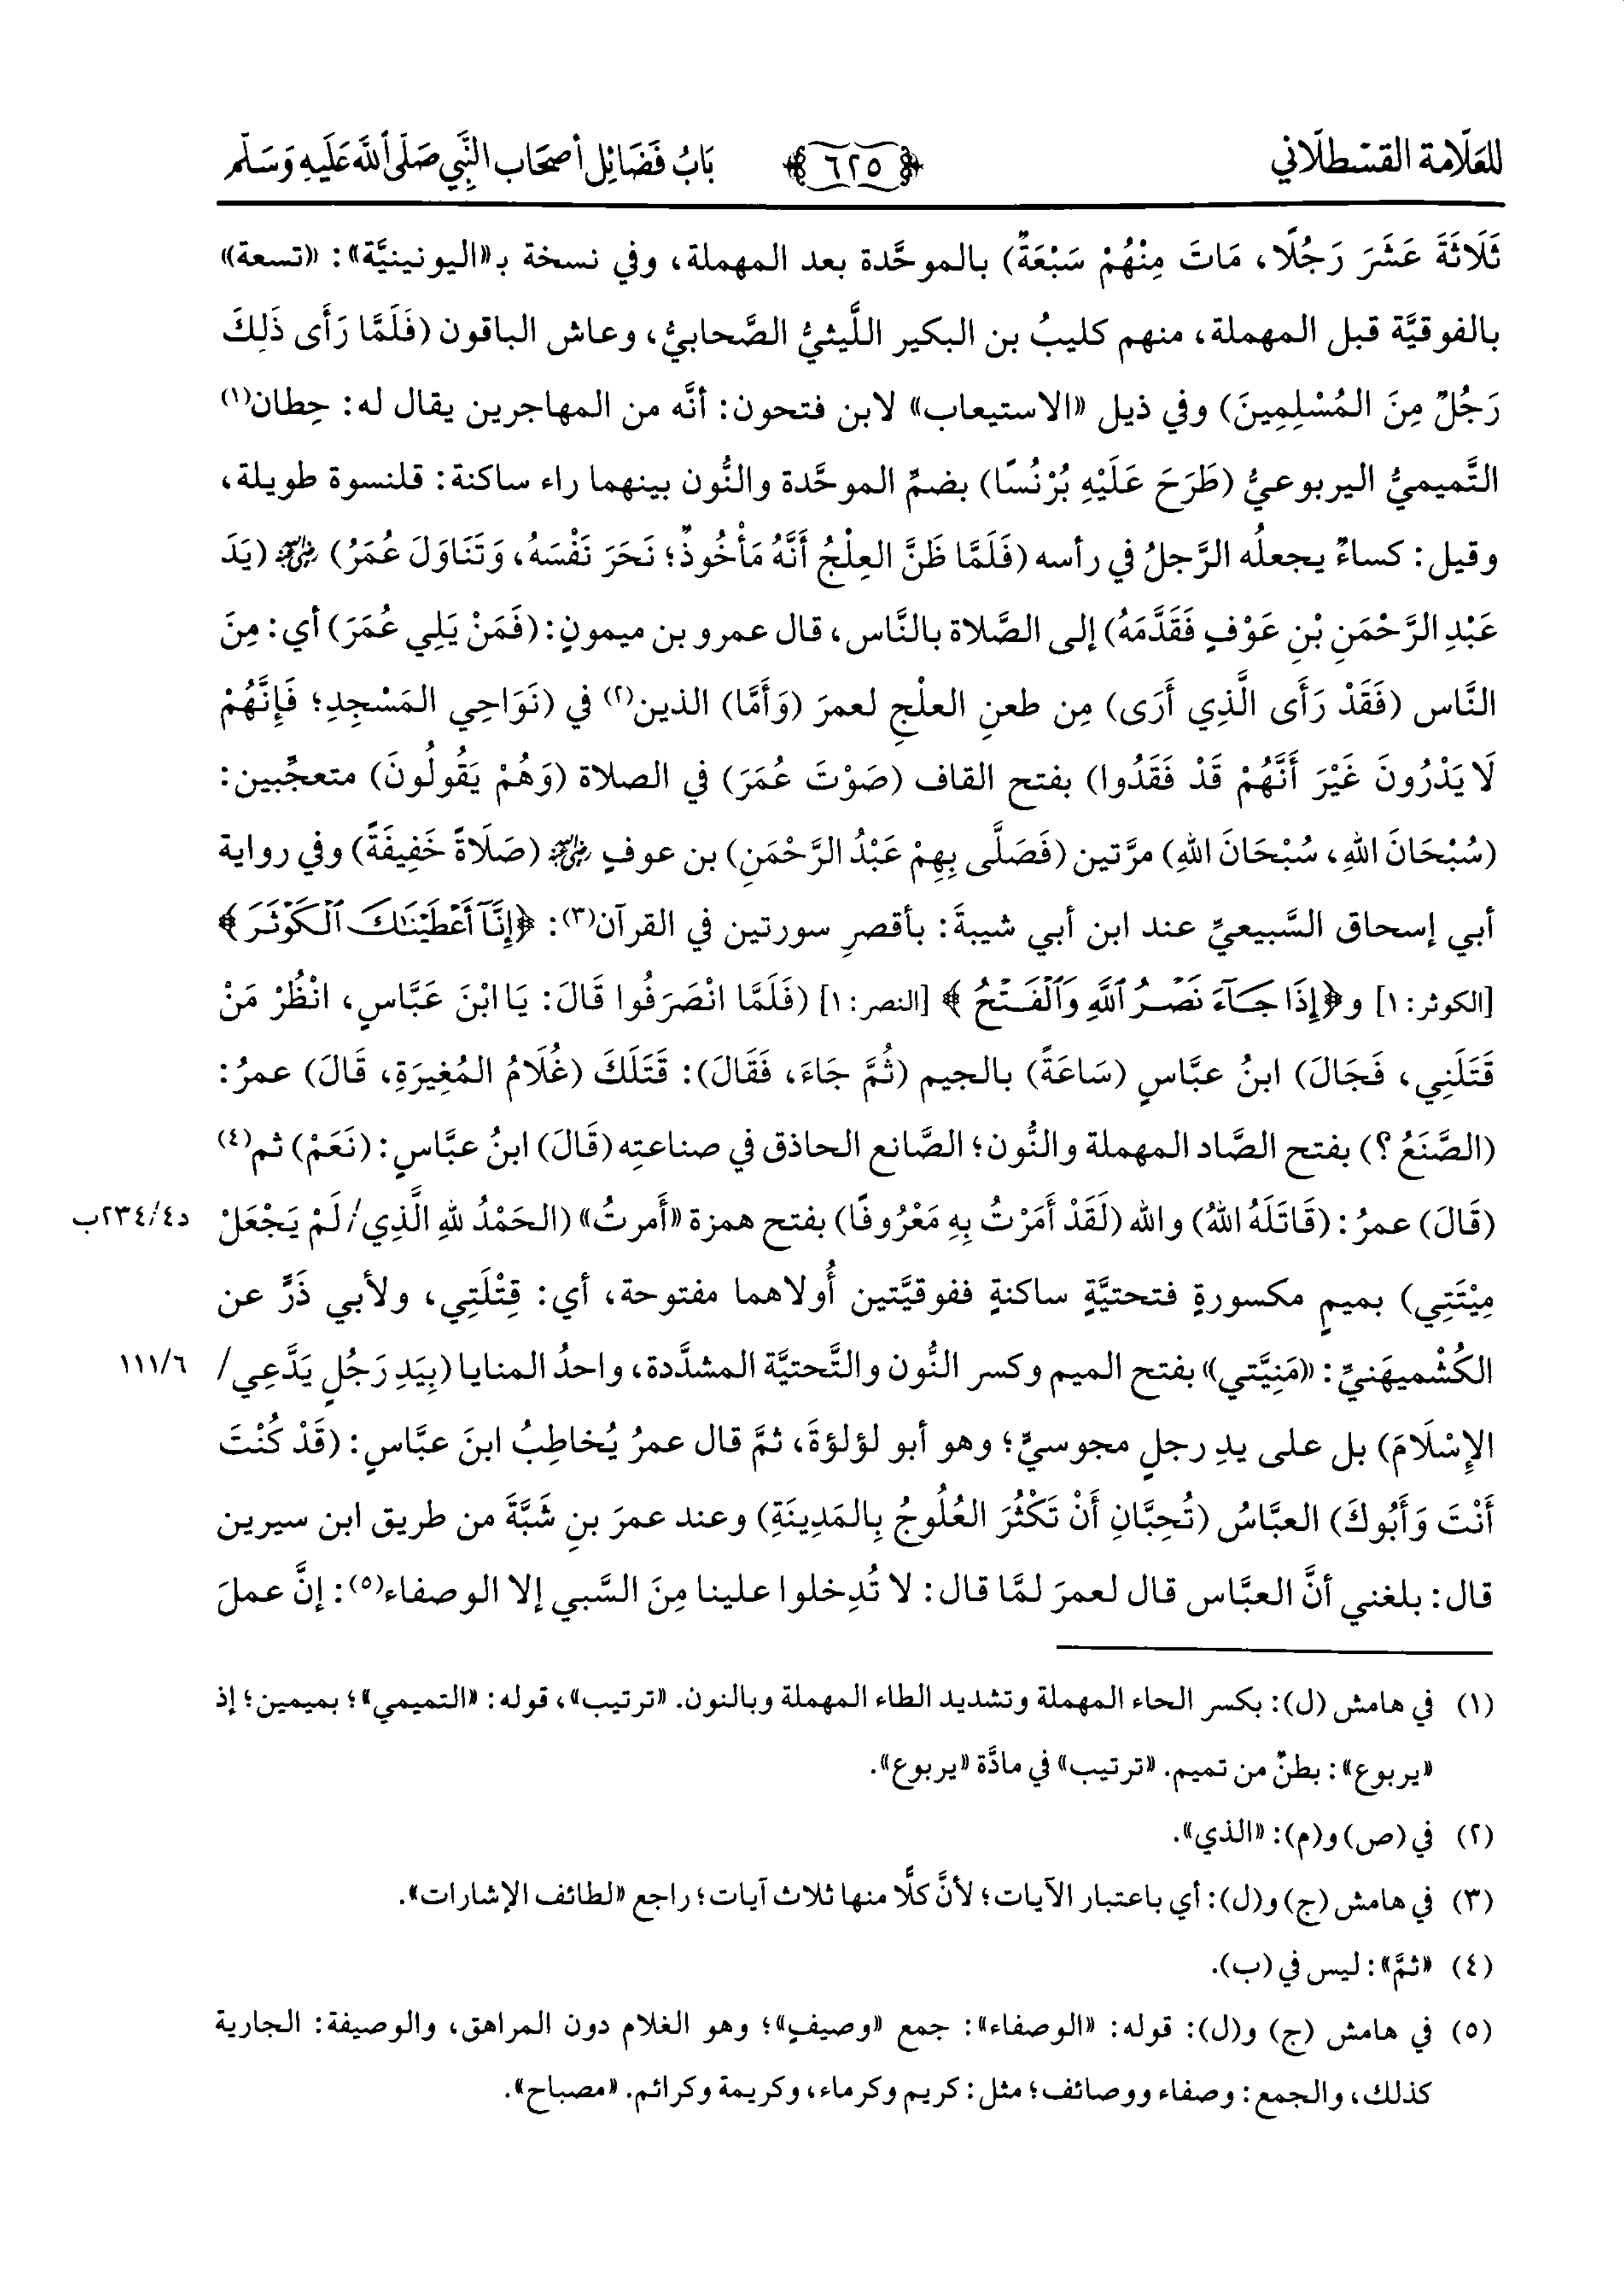 للعلّامة القسطلاني ﴿٦٢٥﴾ بَابُ فَضَائِل أصحَاب النَّبِي صَلَّى اللَّه عَلَيهِ وَسَلَّم
ثَلَاثَةَ عَشَرَ رَجُلًا، مَاتَ مِنْهُمْ سَبْعَةٌ) بالموحَّدة بعد المهملة، وفي نسخة بـ«اليونينيَّة»: «تسعة»
بالفوقيَّة قبل المهملة، منهم كليبُ بن البكير اللَّيثيُّ الصَّحابيُّ، وعاش الباقون (فَلَمَّا رَأَى ذَلِكَ
رَجُلٌ مِنَ المُسْلِمِينَ) وفي ذيل «الاستيعاب» لابن فتحون: أنَّه من المهاجرين يقال له: حِطان(١)
التَّميميُّ اليربوعيُّ (طَرَحَ عَلَيْهِ بُرْنُسًا) بضمِّ الموحَّدة والنُّون بينهما راء ساكنة: قلنسوة طويلة،
وقيل: كساءٌ يجعلُه الرَّجلُ في رأسه (فَلَمَّا ظَنَّ العِلْجُ أَنَّهُ مَأْخُوذٌ؛ نَحَرَ نَفْسَهُ، وَتَنَاوَلَ عُمَرُ) رضي الله عنه (يَدَ
عَبْدِ الرَّحْمَنِ بْنِ عَوْفٍ فَقَدَّمَهُ) إلى الصَّلاة بالنَّاس، قال عمرو بن ميمونٍ: (فَمَنْ يَلِي عُمَرَ) أي: مِنَ
النَّاس (فَقَدْ رَأَى الَّذِي أَرَى) مِن طعنِ العلْجِ لعمرَ (وَأَمَّا) الذين(٢) في (نَوَاحِي المَسْجِدِ؛ فَإِنَّهُمْ
لَا يَدْرُونَ غَيْرَ أَنَّهُمْ قَدْ فَقَدُوا) بفتح القاف (صَوْتَ عُمَرَ) في الصلاة (وَهُمْ يَقُولُونَ) متعجِّبين:
(سُبْحَانَ اللهِ، سُبْحَانَ اللهِ) مرَّتين (فَصَلَّى بِهِمْ عَبْدُ الرَّحْمَنِ) بن عوفٍ رضي الله عنه (صَلَاةً خَفِيفَةً) وفي رواية
أبي إسحاق السَّبيعيِّ عند ابن أبي شيبةَ: بأقصرِ سورتين في القرآن(٣): ﴿إِنَّآ أَعۡطَيۡنَٰكَ ٱلۡكَوۡثَرَ﴾
[الكوثر: ١] و﴿إِذَا جَآءَ نَصۡرُ ٱللَّهِ وَٱلۡفَتۡحُ﴾ [النصر: ١] (فَلَمَّا انْصَرَفُوا قَالَ: يَا ابْنَ عَبَّاسٍ، انْظُرْ مَنْ
قَتَلَنِي، فَجَالَ) ابنُ عبَّاسٍ (سَاعَةً) بالجيم (ثُمَّ جَاءَ، فَقَالَ): قَتَلَكَ (غُلَامُ المُغِيرَةِ، قَالَ) عمرُ:
(الصَّنَعُ؟) بفتح الصَّاد المهملة والنُّون؛ الصَّانع الحاذق في صناعتِه (قَالَ) ابنُ عبَّاسٍ: (نَعَمْ) ثم(٤)
(قَالَ) عمرُ: (قَاتَلَهُ اللهُ) والله (لَقَدْ أَمَرْتُ بِهِ مَعْرُوفًا) بفتح همزة «أَمرتُ» (الحَمْدُ للهِ الَّذِي/ لَمْ يَجْعَلْ د٢٣٤/٤ب
مِيْتَتِي) بميمٍ مكسورةٍ فتحتيَّةٍ ساكنةٍ ففوقيَّتين أُولاهما مفتوحة، أي: قِتْلَتِي، ولأبي ذَرٍّ عن
الكُشْميهَنيِّ: «مَنِيَّتي» بفتح الميم وكسر النُّون والتَّحتيَّة المشدَّدة، واحدُ المنايا (بِيَدِ رَجُلٍ يَدَّعِي/ ١١١/٦
الإِسْلَامَ) بل على يدِ رجلٍ مجوسيٍّ؛ وهو أبو لؤلؤةَ، ثمَّ قال عمرُ يُخاطِبُ ابنَ عبَّاسٍ: (قَدْ كُنْتَ
أَنْتَ وَأَبُوكَ) العبَّاسُ (تُحِبَّانِ أَنْ تَكْثُرَ العُلُوجُ بِالمَدِينَةِ) وعند عمرَ بنِ شَبَّةَ من طريق ابن سيرين
قال: بلغني أنَّ العبَّاس قال لعمرَ لمَّا قال: لا تُدِخلوا علينا مِنَ السَّبي إلا الوصفاء(٥): إنَّ عملَ
(١) في هامش (ل): بكسر الحاء المهملة وتشديد الطاء المهملة وبالنون. «ترتيب»، قوله: «التميمي»؛ بميمين؛ إذ
«يربوع»: بطنٌ من تميم. «ترتيب» في مادَّة «يربوع».
(٢) في (ص) و(م): «الذي».
(٣) في هامش (ج) و(ل): أي باعتبار الآيات؛ لأنَّ كلًّا منها ثلاث آيات؛ راجع «لطائف الإشارات».
(٤) «ثمَّ»: ليس في (ب).
(٥) في هامش (ج) و(ل): قوله: «الوصفاء»: جمع «وصيفٍ»؛ وهو الغلام دون المراهق، والوصيفة: الجارية
كذلك، والجمع: وصفاء ووصائف؛ مثل: كريم وكرماء، وكريمة وكرائم. «مصباح».